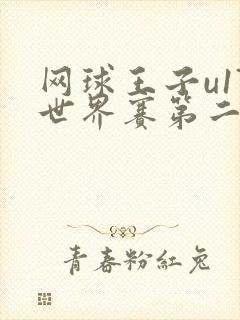 网球王子u1
世界赛第二
青春粉紅兔